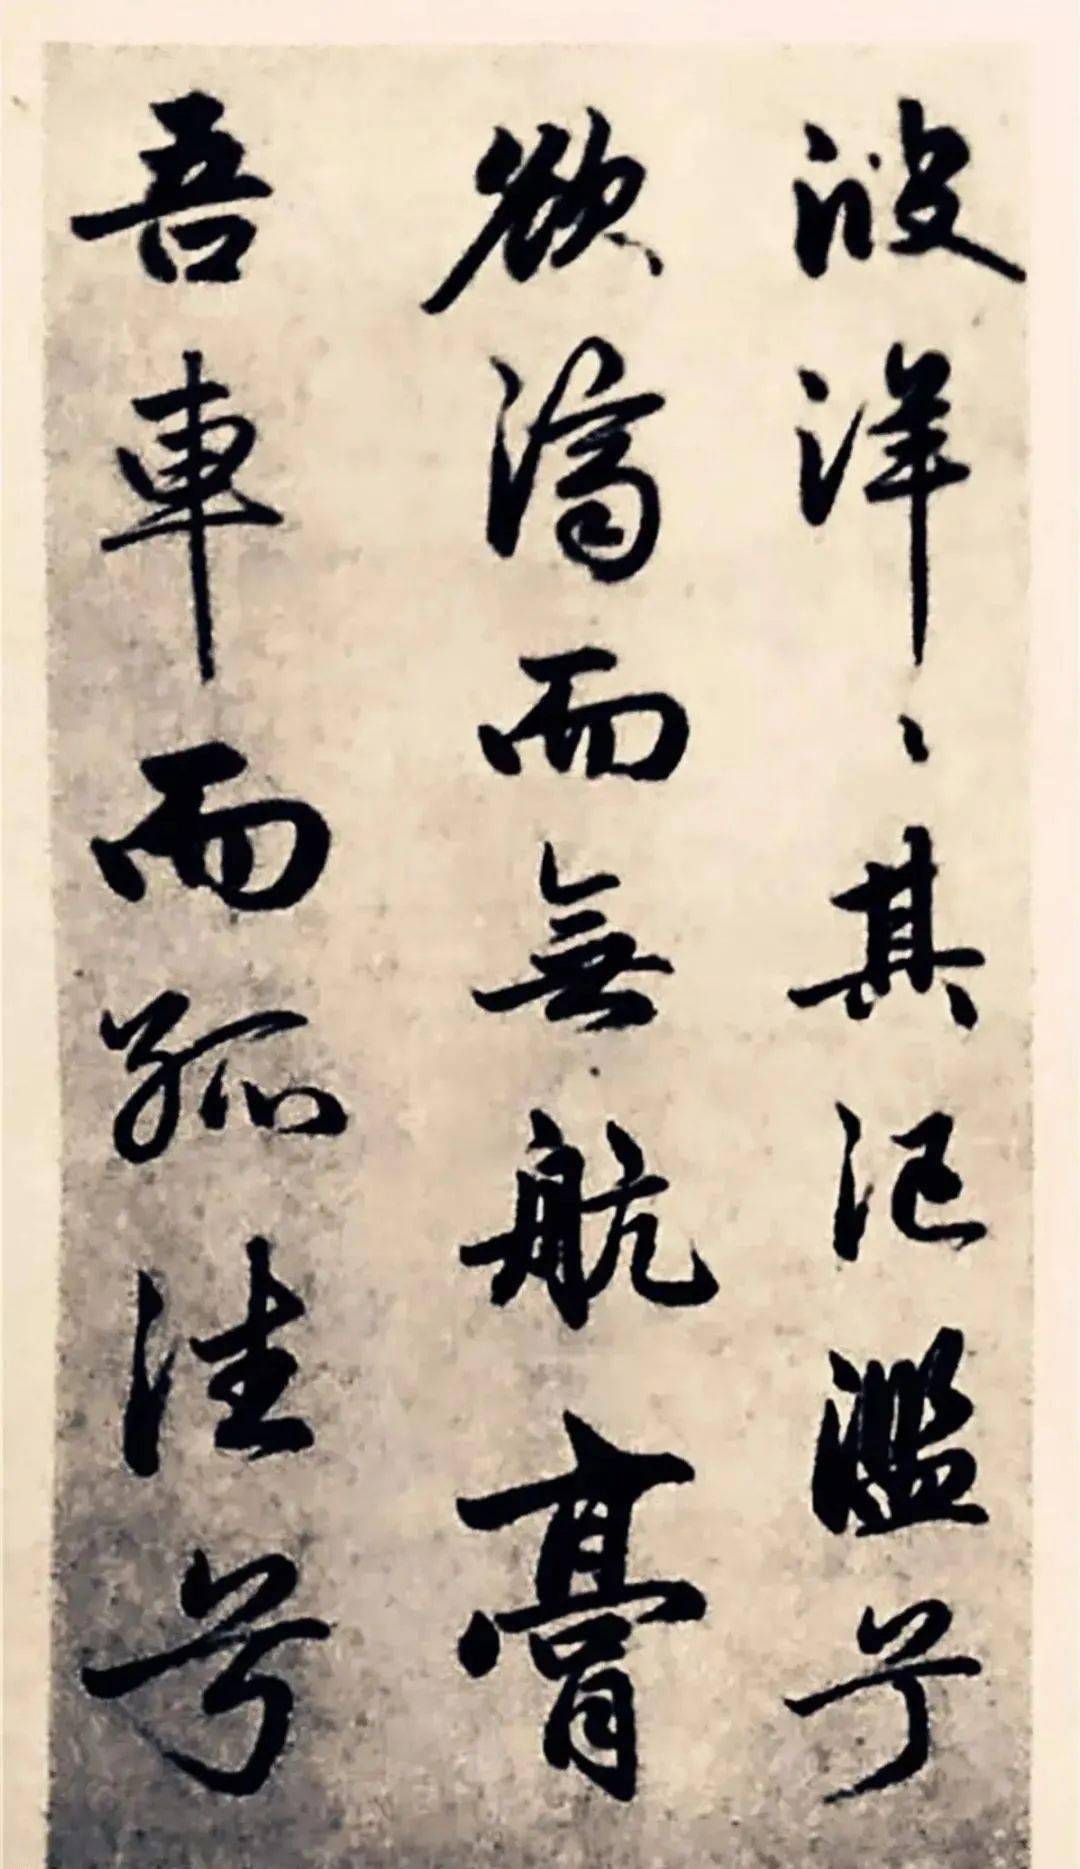 波洋〻其汜濫兮
欲濟而無航膏
吾車而孤往兮